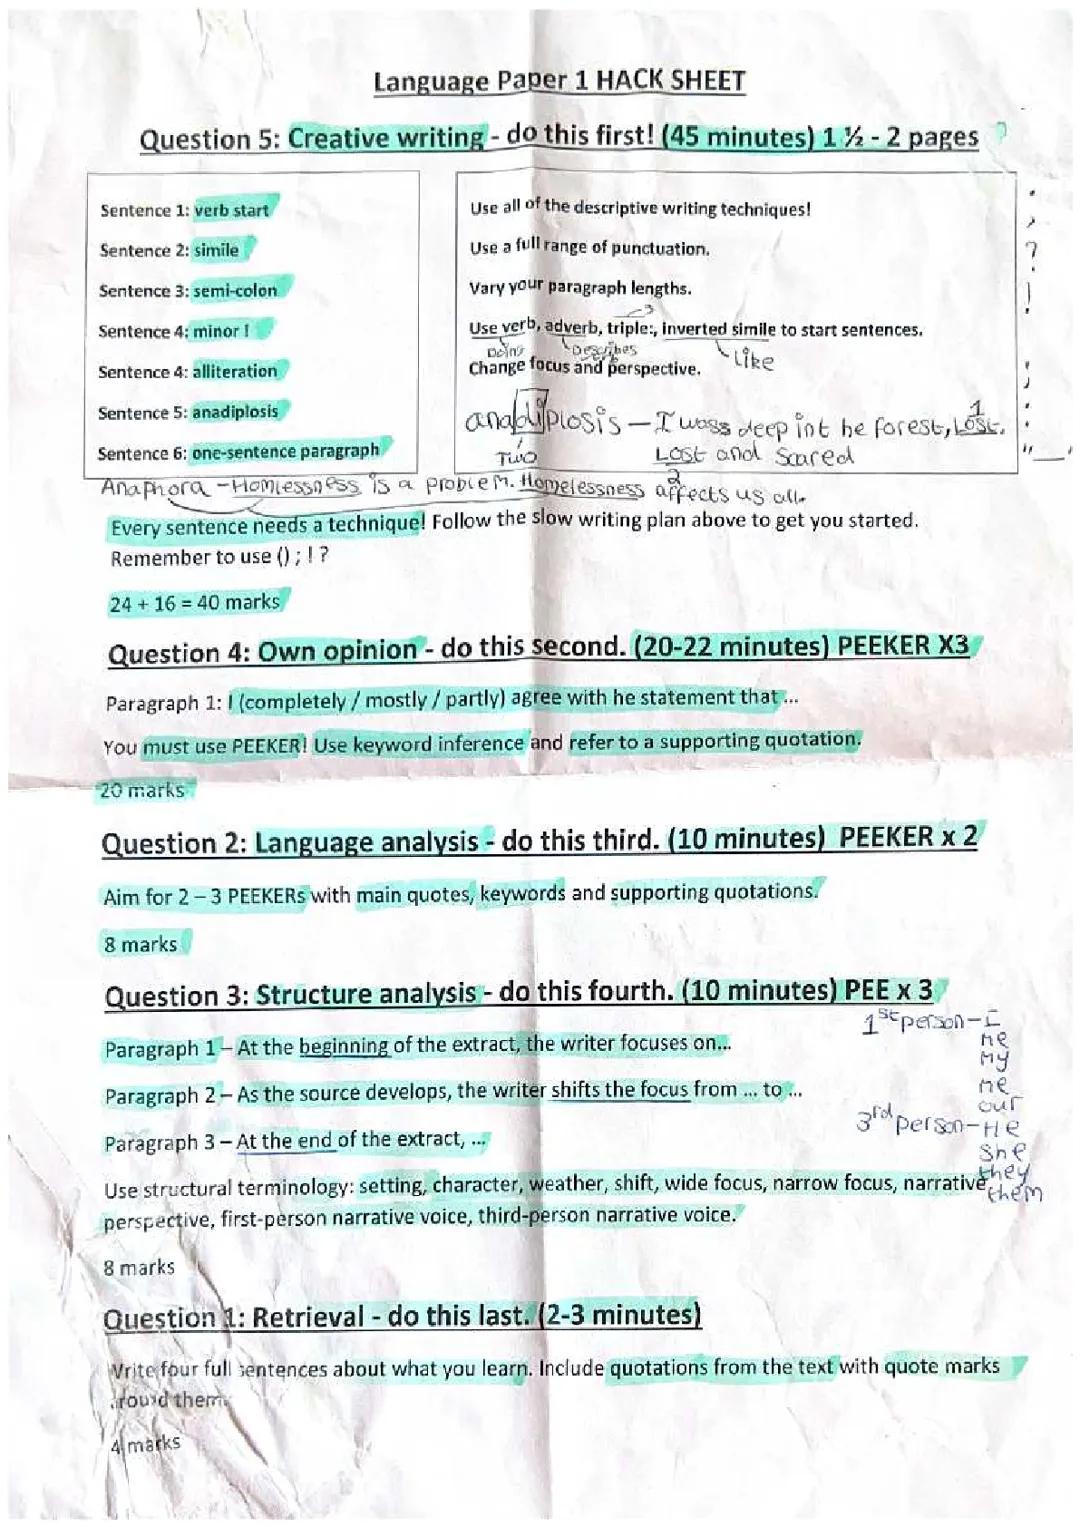 Language Paper 1 HACK SHEET
Question 5: Creative writing - do this first! (45 minutes) 1 ½ - 2 pages
Sentence 1: verb start
Sentence 2: simile
Sentence 3: semi-colon
Sentence 4: minor !
Sentence 4: alliteration
Sentence 5: anadiplosis
Sentence 6: one-sentence paragraph
Use all of the descriptive writing techniques!
Use a full range of punctuation.
Vary your paragraph lengths.
3
Use verb, adverb, triple:, inverted simile to start sentences.
Doing Describes Like
Change focus and perspective.
anadiplosis - I wass deep int he forest, Lost.
1
Two Lost and Scared
2
? ! " __ "
Anaphora - Homlessness is a problem. Homelessness affects us all.
Every sentence needs a technique! Follow the slow writing plan above to get you started.
Remember to use () ; ! ?
24 + 16 = 40 marks
Question 4: Own opinion - do this second. (20-22 minutes) PEEKER X3
Paragraph 1: I (completely / mostly / partly) agree with he statement that ...
You must use PEEKER! Use keyword inference and refer to a supporting quotation.
20 marks
Question 2: Language analysis - do this third. (10 minutes) PEEKER x 2
Aim for 2 – 3 PEEKERs with main quotes, keywords and supporting quotations.
8 marks
Question 3: Structure analysis - do this fourth. (10 minutes) PEE x 3
1st person - I
me
my
me
our
3rd person - He
She
they
them
Paragraph 1 – At the beginning of the extract, the writer focuses on...
Paragraph 2 – As the source develops, the writer shifts the focus from ... to ...
Paragraph 3 – At the end of the extract, ...
Use structural terminology: setting, character, weather, shift, wide focus, narrow focus, narrative
perspective, first-person narrative voice, third-person narrative voice.
8 marks
Question 1: Retrieval - do this last. (2-3 minutes)
Write four full sentences about what you learn. Include quotations from the text with quote marks
around them.
4 marks